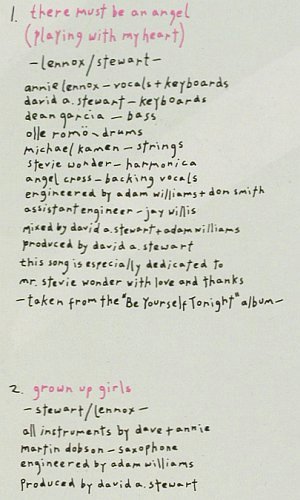 1. there must be an angel
(playing with my heart)
- lennox/stewart -
annie lennox - vocals + keyboards
david a. stewart - keyboards
dean garcia - bass
olle romö - drums
michael kamen - strings
stevie wonder - harmonica
angel cross - backing vocals
engineered by adam williams + don smith
assistant engineer - jay willis
mixed by david a. stewart + adam williams
produced by david a. stewart
this song is especially dedicated to
mr. stevie wonder with love and thanks
- taken from the "Be Yourself Tonight" album -
2. grown up girls
- stewart/lennox -
all instruments by dave + annie
martin dobson - saxophone
engineered by adam williams
produced by david a. stewart